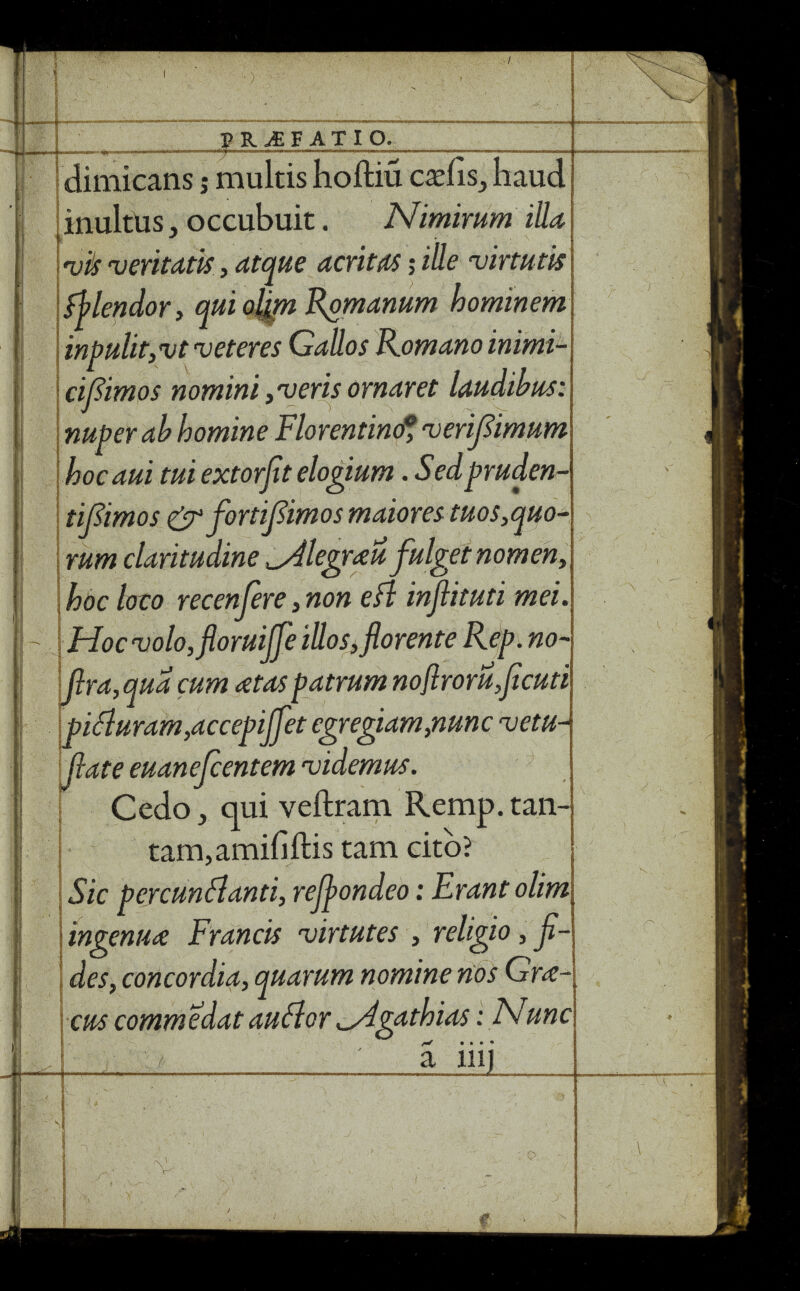 PRÆFATIO.
dimicans; multis hoſtiũ cæſis, haud
inultus, occubuit. Nimirum illa
vis veritatis, atque acritas; ille virtutis
ſplendor, qui olim Romanum hominem
inpulit, vt veteres Gallos Romano inimi-
cißimos nomini, veris ornaret laudibus:
nuper ab homine Florentino, verißimum
hoc aui tui extorſit elogium. Sed pruden-
tißimos & fortißimos maiores tuos, quo-
rum claritudine Alegræũ fulget nomen,
hoc loco recenſere, non eſt inſtituti mei.
Hoc volo, floruiſſe illos, florente Rep. no-
ſtra, quã cum ætas patrum noſtrorũ, ſicuti
picturam, accepiſſet egregiam, nunc vetu-
ſtate euaneſcentem videmus.
Cedo, qui veſtram Remp. tan-
tam, amiſiſtis tam citò?
Sic percunctanti, reſpondeo: Erant olim
ingenuæ Francis virtutes, religio, fi-
des, concordia, quarum nomine nos Græ-
cus commẽdat auctor Agathias: Nunc
ã iiij